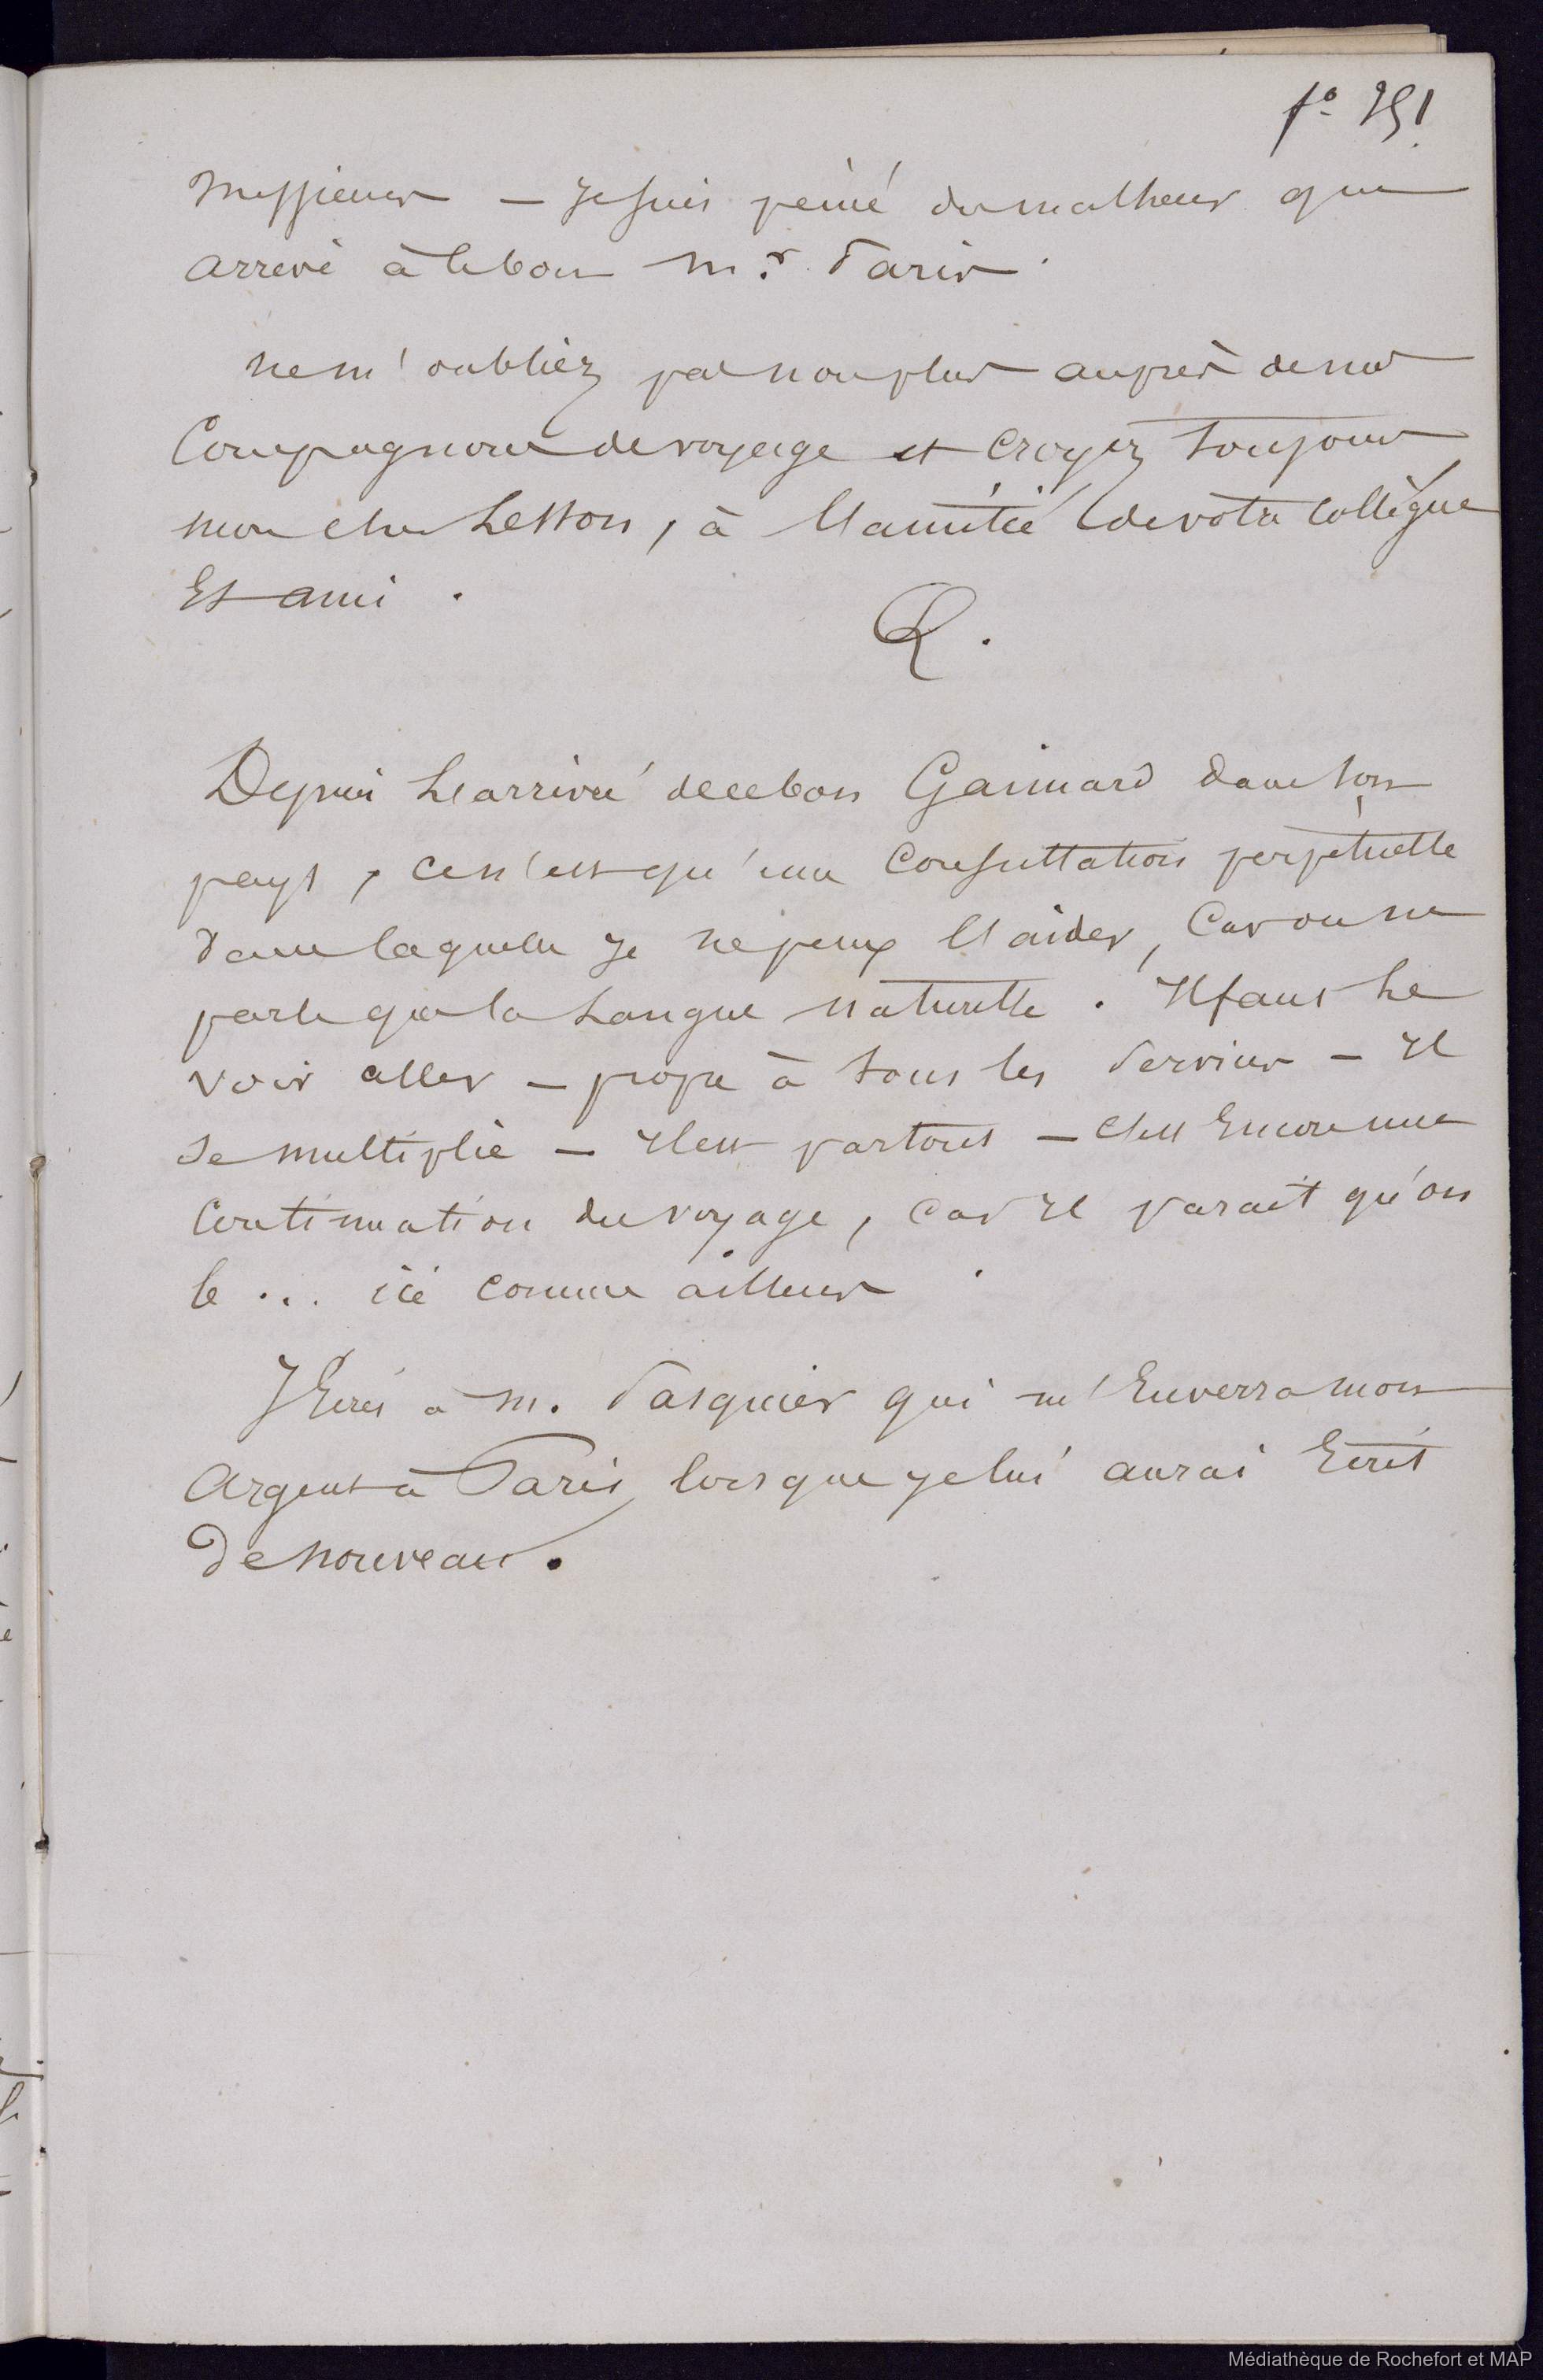 fo 251
Messieurs — Je suis peiné du malheur que
arrivé à le bon Mr. Paris.
ne m'oubliéz pas non plus auprès de nos
Compagnons de voyage et croyez toujours
mon cher Lesson, à l'amitié de votre collègue
Et ami.
Q.
Depuis L'arrivée de ce bon Gaimard dans son
pays, ce n'est qu'une Consultation perpétuelle
dans laquelle je ne peux l'aider, Car on ne
parle que la Langue naturelle. Il faut Le
voir aller — propre à tous les Services — Il
se multiplie — Il est partout — C'est Encore une
Continuation du voyage, car il parait qu'on
le ... ici comme ailleurs.
J'Ecris à M. Pasquier qui m'Enverra mon
argent à Paris lorsque je lui aurai Ecrit
De nouveau.
Médiathèque de Rochefort et MAP